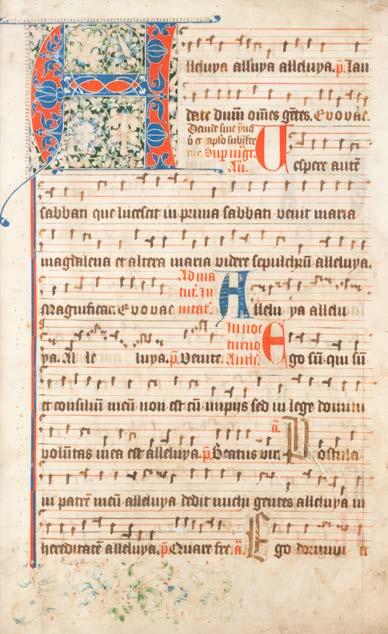 A lleluya alleluya alleluya. p. Lau
date dnm omes gētes. Evovae.
Deinde sine ymno
Sup nigt.
An.
Vespere autē
sabbati que lucescit in prima sabbati venit maria
magdalena et altera maria videre sepulcrū alleluya.
Magnificat. Evovae
Ad ma
tut. In
vitat.
Allelu ya allelu
ya. Al le luya. p. Venite.
In noc
turno
Anti.
Ego sū qui sū
et consiliū meū non est cū impijs sed in lege domini
volūtas mea est alleluya. p. Beatus vir. a. Postula
vi patrē meū alleluya dedit michi gentes alleluya in
hereditatē alleluya. p. Quare fre. a. Ego dormivi